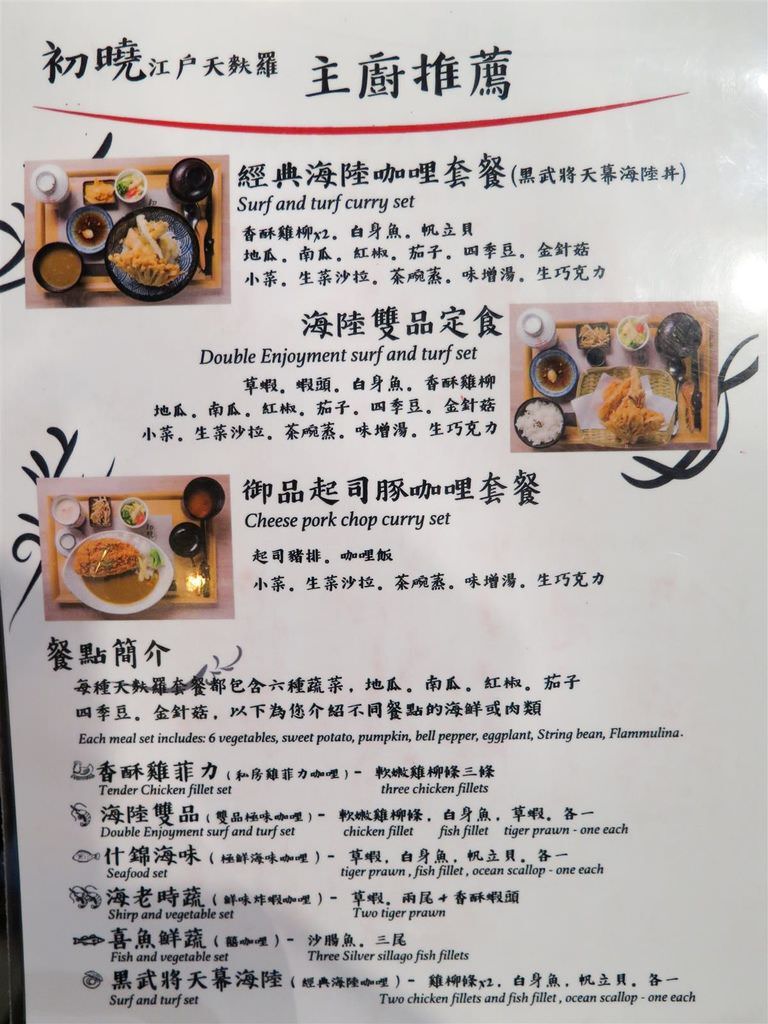 初曉江户天麩羅 主廚推薦
經典海陸咖哩套餐(黑武將天幕海陸丼)
Surf and turf curry set
香酥雞柳x2。白身魚。帆立貝
地瓜。南瓜。紅椒。茄子。四季豆。金針菇
小菜。生菜沙拉。茶碗蒸。味增湯。生巧克力
海陸雙品定食
Double Enjoyment surf and turf set
草蝦。蝦頭。白身魚。香酥雞柳
地瓜。南瓜。紅椒。茄子。四季豆。金針菇
小菜。生菜沙拉。茶碗蒸。味增湯。生巧克力
御品起司豚咖哩套餐
Cheese pork chop curry set
起司豬排。咖哩飯
小菜。生菜沙拉。茶碗蒸。味增湯。生巧克力
餐點簡介
每種天麩羅套餐都包含六種蔬菜，地瓜。南瓜。紅椒。茄子
四季豆。金針菇，以下為您介紹不同餐點的海鮮或肉類
Each meal set includes: 6 vegetables, sweet potato, pumpkin, bell pepper, eggplant, String bean, Flammulina.
香酥雞菲力(私房雞菲力咖哩)- 軟嫩雞柳條三條
Tender Chicken fillet set three chicken fillets
海陸雙品(雙品極味咖哩)- 軟嫩雞柳條，白身魚，草蝦。各一
Double Enjoyment surf and turf set chicken fillet fish fillet tiger prawn - one each
什錦海味(極鮮海味咖哩)- 草蝦，白身魚，帆立貝。各一
Seafood set tiger prawn , fish fillet , ocean scallop - one each
海老時蔬(鮮味炸蝦咖哩)- 草蝦。兩尾+香酥蝦頭
Shirp and vegetable set Two tiger prawn
喜魚鮮蔬(囍咖哩)- 沙腸魚。三尾
Fish and vegetable set Three Silver sillago fish fillets
黑武將天幕海陸(經典海陸咖哩)- 雞柳條x2，白身魚，帆立貝。各一
Surf and turf set Two chicken fillets and fish fillet , ocean scallop - one each